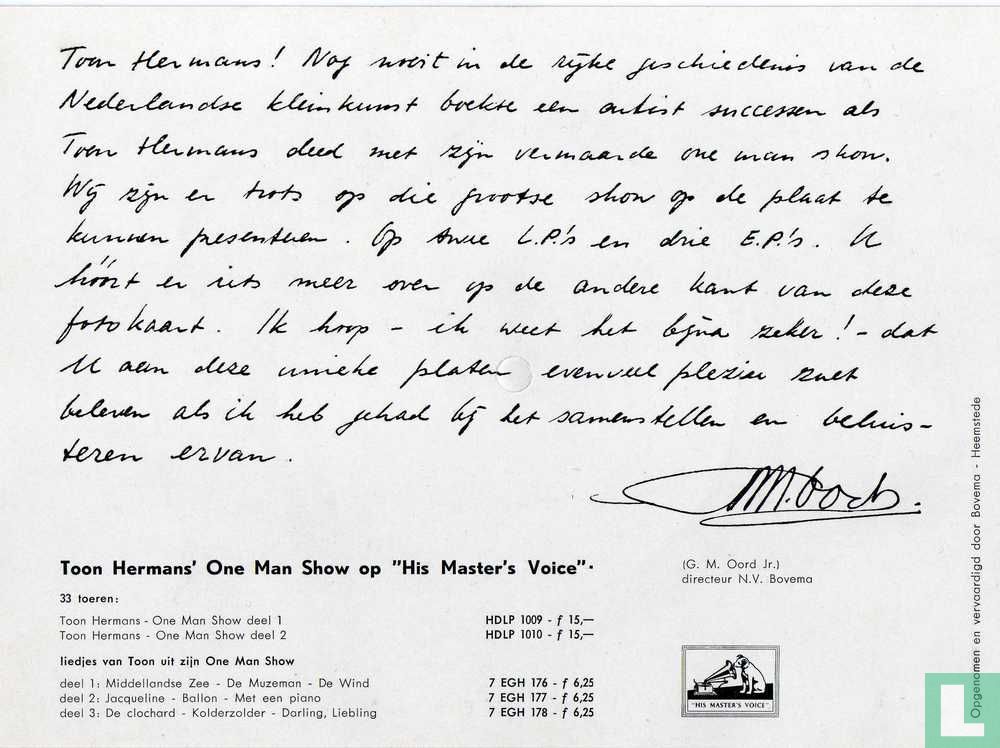 Toon Hermans! Nog nooit in de rijke geschiedenis van de
Nederlandse kleinkunst boekte een artist successen als
Toon Hermans deed met zijn vermaarde one man show.
Wij zijn er trots op die grootse show op de plaat te
kunnen presenteren. Op twee L.P.'s en drie E.P.'s. U
hóórt er iets meer over op de andere kant van deze
fotokaart. Ik hoop - ik weet het bijna zeker! - dat
U aan deze unieke platen evenveel plezier zult
beleven als ik heb gehad bij het samenstellen en beluis-
teren ervan.
GM. Oord.
Toon Hermans' One Man Show op "His Master's Voice".
(G. M. Oord Jr.)
directeur N.V. Bovema
33 toeren:
Toon Hermans - One Man Show deel 1 HDLP 1009 - f 15,—
Toon Hermans - One Man Show deel 2 HDLP 1010 - f 15,—
liedjes van Toon uit zijn One Man Show
deel 1: Middellandse Zee - De Muzeman - De Wind 7 EGH 176 - f 6,25
deel 2: Jacqueline - Ballon - Met een piano 7 EGH 177 - f 6,25
deel 3: De clochard - Kolderzolder - Darling, Liebling 7 EGH 178 - f 6,25
"HIS MASTER'S VOICE"
Opgenomen en vervaardigd door Bovema - Heemstede
L